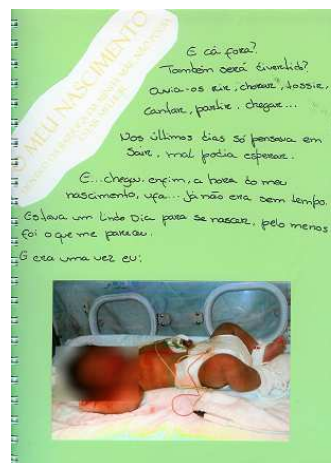 O MEU NASCIMENTO
E cá fora?
Também será divertido?
Ouvia-os rir, chorar, tossir,
cantar, partir, chegar...
Nos últimos dias só pensava em
sair, mal podia esperar.
E... chegou enfim, a hora do meu
nascimento, ufa... Já não era sem tempo.
Estava um lindo Dia para se nascer, pelo menos
foi o que me pareceu.
E era uma vez eu: